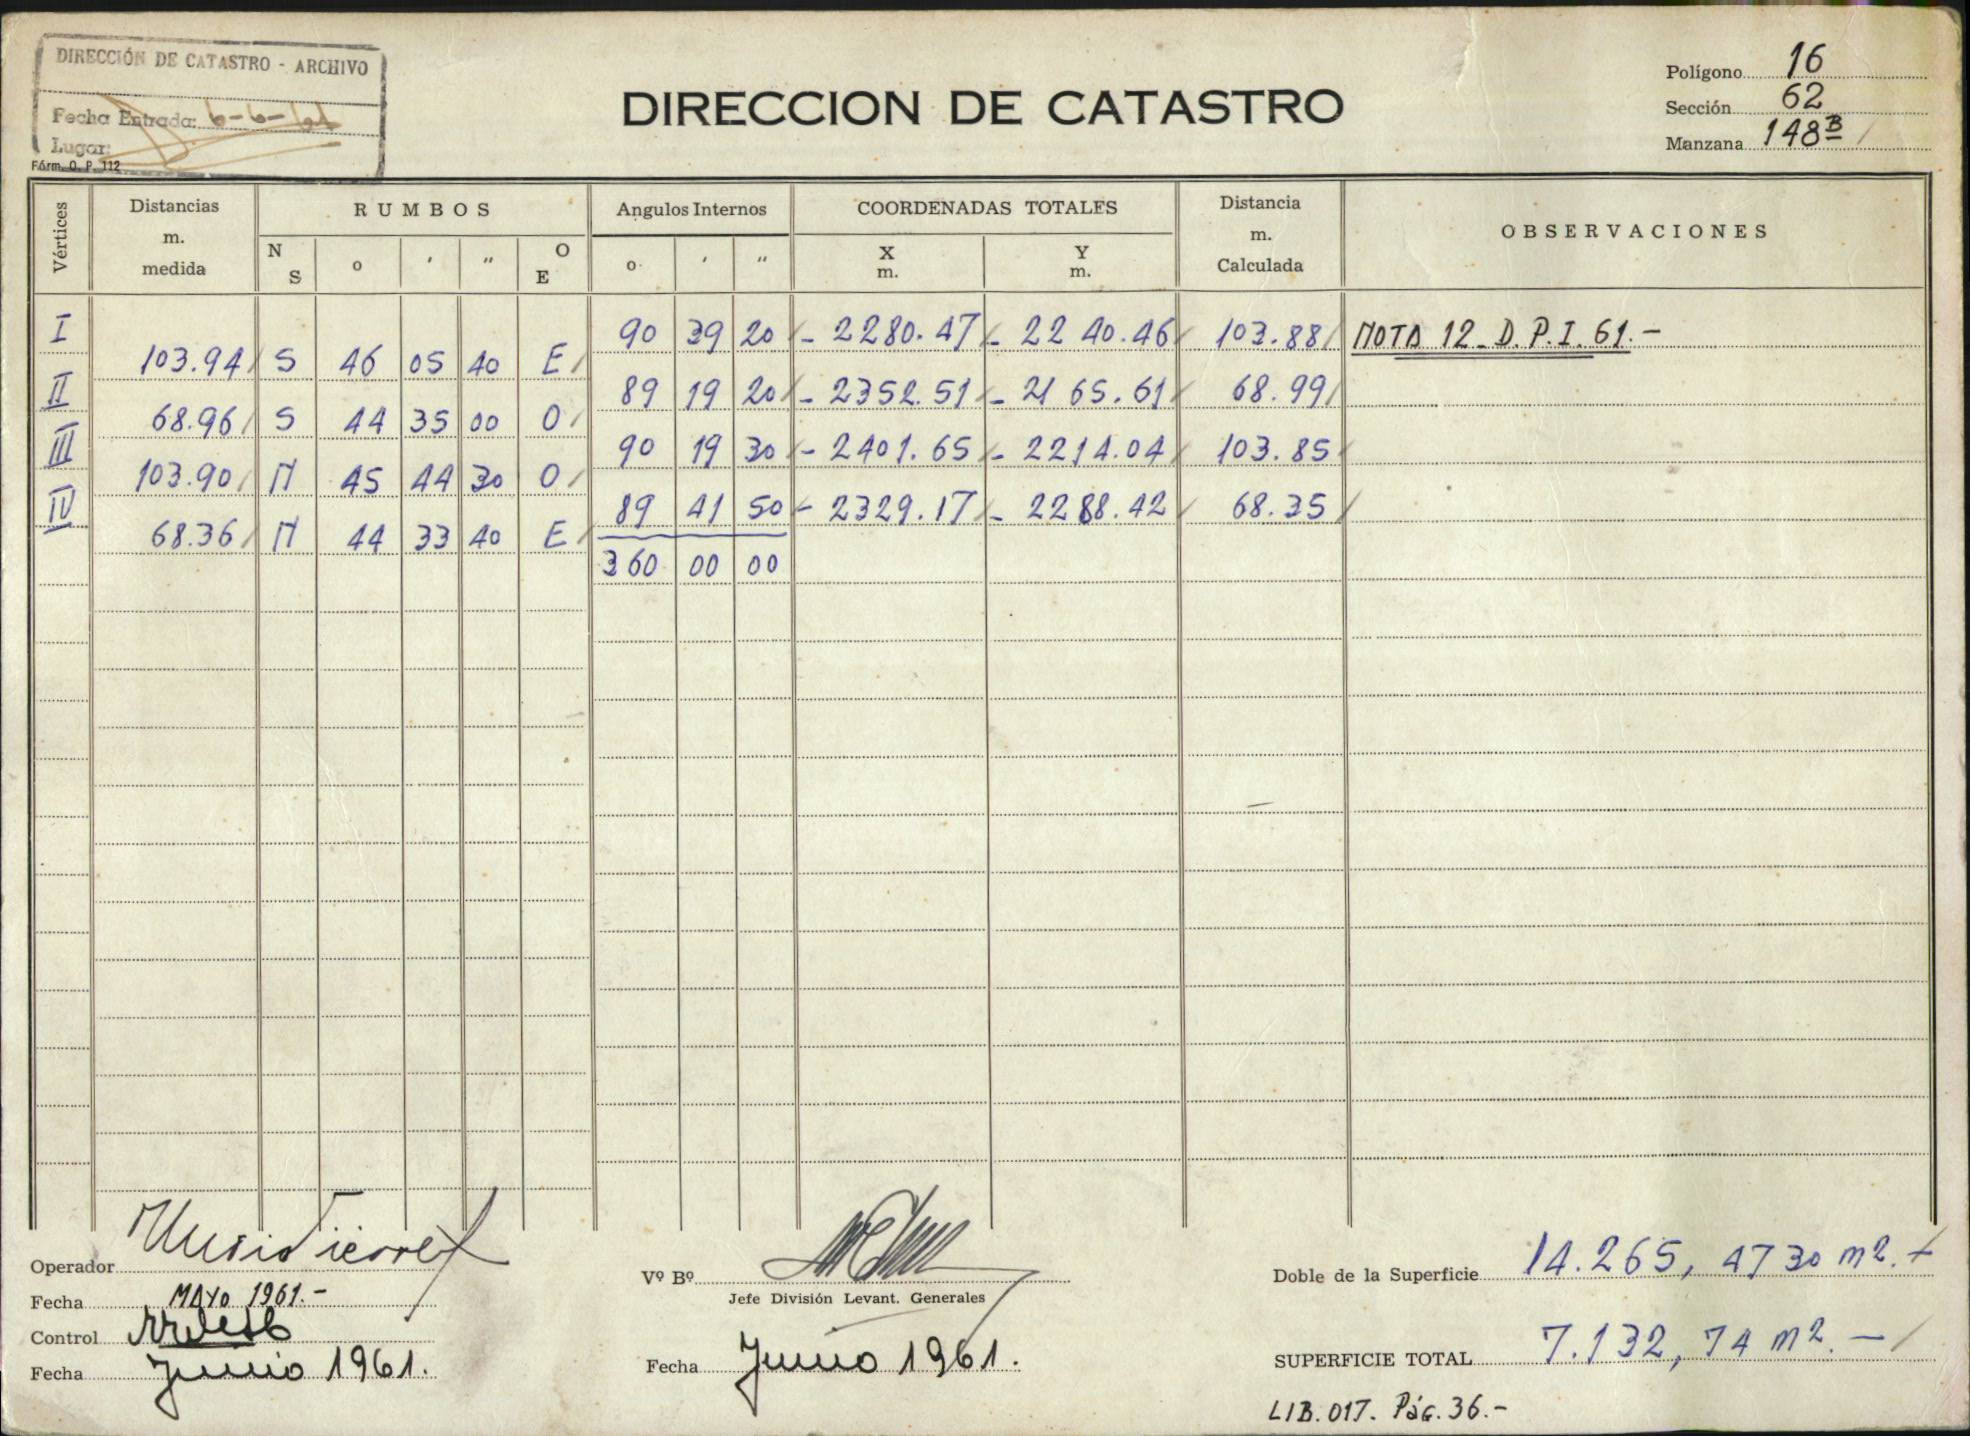 DIRECCIÓN DE CATASTRO - ARCHIVO
Fecha Entrada: 6-6-61
Lugar:
Fórm. O. P. 112
DIRECCION DE CATASTRO
Polígono 16
Sección 62
Manzana 148 B
Vértices Distancias m. medida RUMBOS Angulos Internos COORDENADAS TOTALES Distancia m. Calculada OBSERVACIONES
N S o ' " O E o ' " X m. Y m.
I 90 39 20 - 2280.47 - 2240.46 103.88 NOTA 12_D.P.I.61.-
103.94 S 46 05 40 E
II 89 19 20 - 2352.51 - 2165.61 68.99
68.96 S 44 35 00 O
III 90 19 30 - 2401.65 - 2214.04 103.85
103.90 N 45 44 30 O
IV 89 41 50 - 2329.17 - 2288.42 68.35
68.36 N 44 33 40 E
360 00 00
Operador
Fecha MAYO 1961.-
Control
Fecha Junio 1961.
Vº Bº
Jefe División Levant. Generales
Fecha Junio 1961.
Doble de la Superficie 14.265, 4730 m2.
SUPERFICIE TOTAL 7.132, 74 m2.-
LIB.017. Pág.36.-